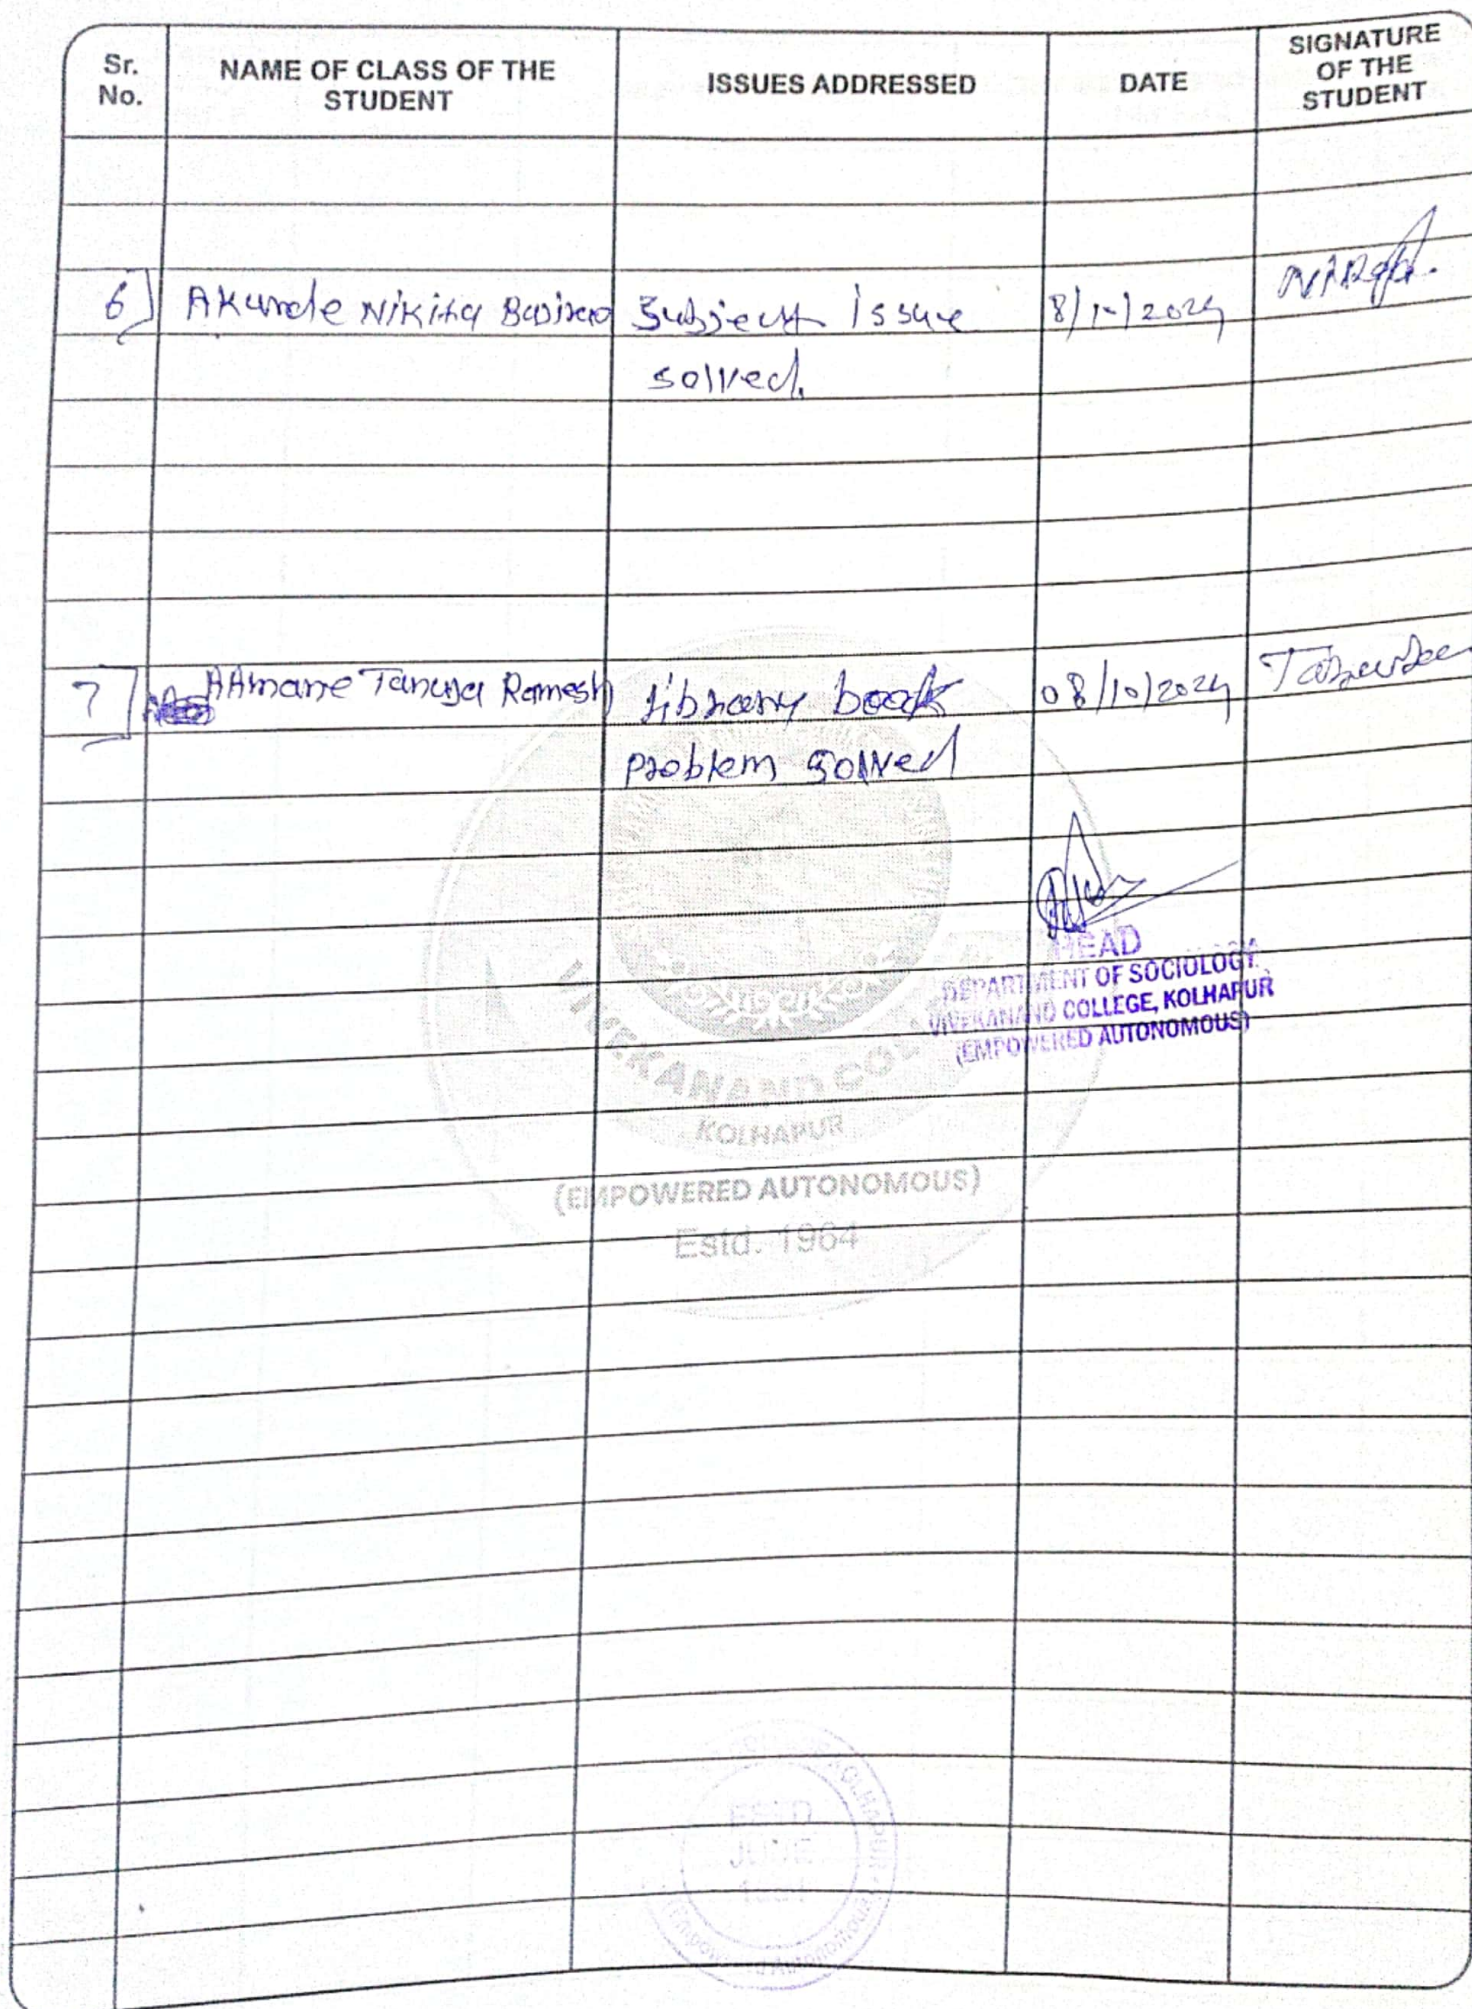 Sr. No.
NAME OF CLASS OF THE STUDENT
ISSUES ADDRESSED
DATE
SIGNATURE OF THE STUDENT
6] Akurde Nikita Subject Issue 8/10/2024
solved.
7] AAmane Tanuja Ramesh Library book 08/10/2024
problem solved
HEAD
DEPARTMENT OF SOCIOLOGY
VIVEKANAND COLLEGE, KOLHAPUR
(EMPOWERED AUTONOMOUS)
VIVEKANAND COL
KOLHAPUR
(EMPOWERED AUTONOMOUS)
Estd. 1964
ESTD
JUNE
1964